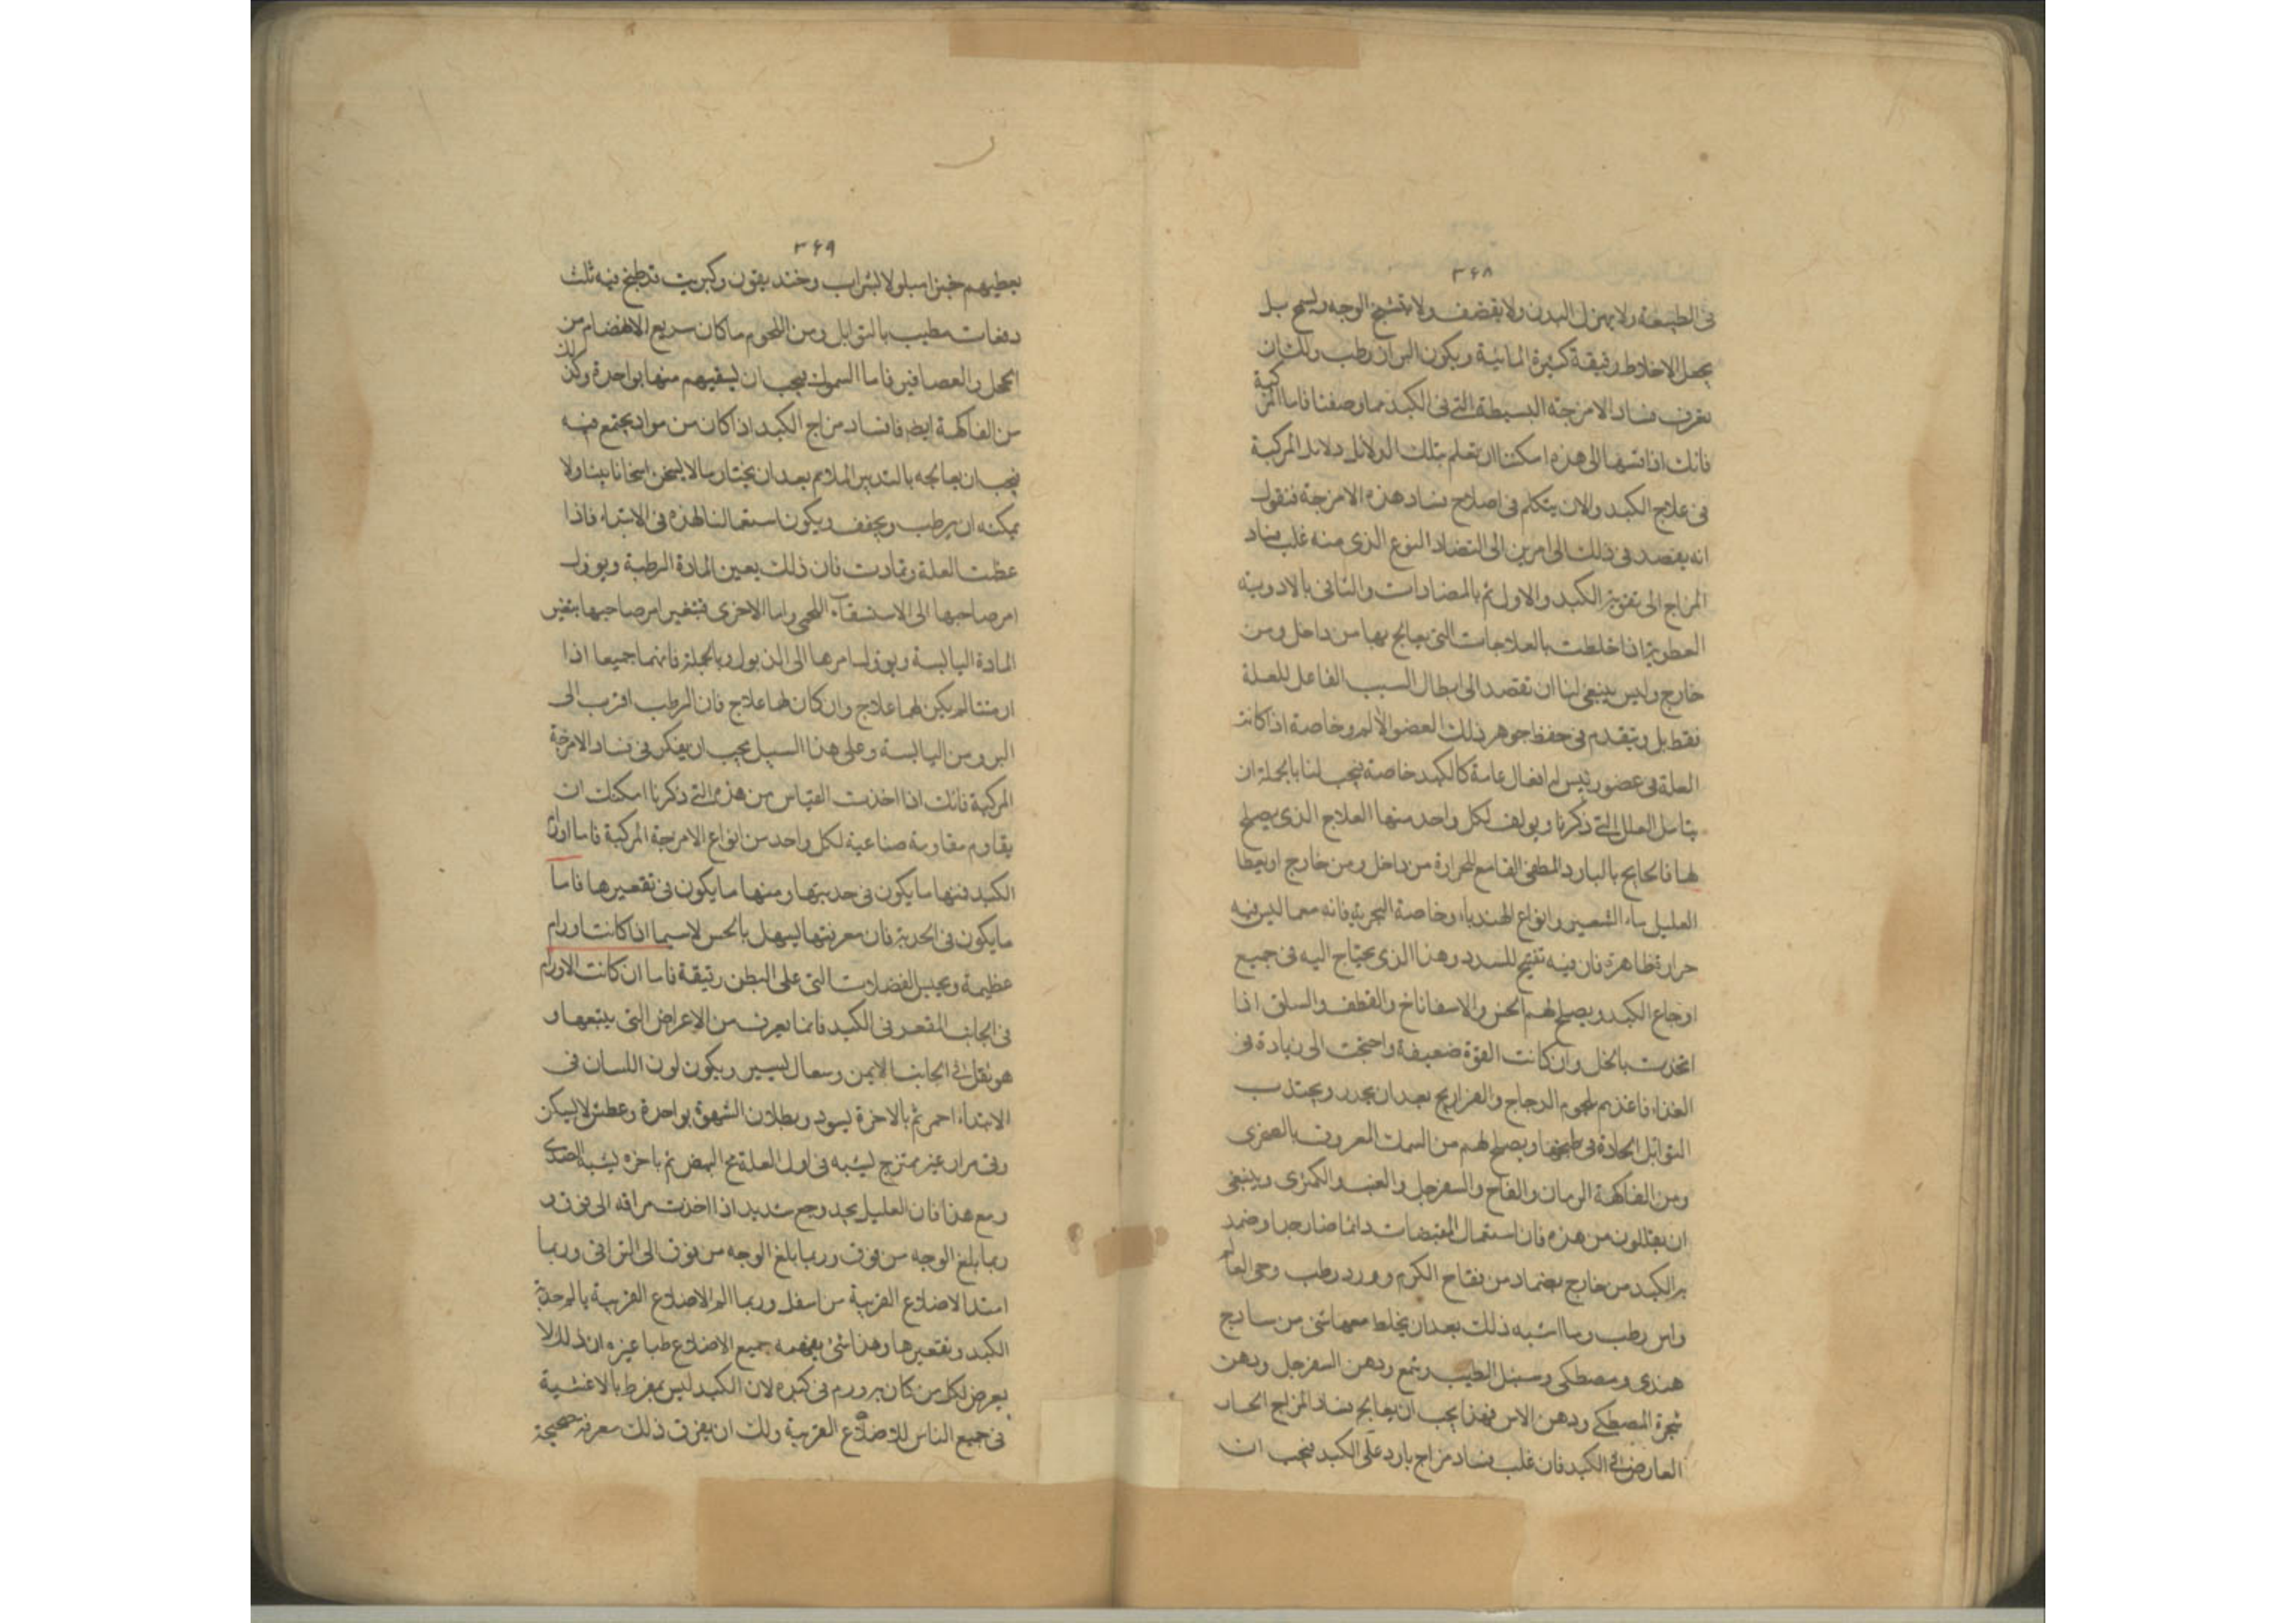 ٣۶٨
فى الطبيعة ولا يهزل البدن ولا يقضف ولا يتشنج الوجه ويسمج بل
يجعل الاخلاط رقيقة كثيرة المائية ويكون البراز رطب ولك ان
تعرف فساد الامزجة البسيطة التى فى الكبد مما وصفنا فاما المركبة
فانك اذا نسبتها الى هذه امكنك ان تعلم بتلك الدلائل دلائل المركبة
فى علاج الكبد والان يتكلم فى اصلاح فساد هذه الامزجة فنقول
انه يقصد فى ذلك الى امرين الى التضاد النوع الذى منه غلب فساد
المزاج الى تقوية الكبد والاول يتم بالمضادات والثانى بالادوية
العطرية اذا خلطت بالعلاجات التى يعالج بها من داخل ومن
خارج وليس ينبغى لنا ان نقصد الى ابطال السبب الفاعل للعلة
فقط بل ويتقدم فى حفظ جوهر ذلك العضو الألم وخاصة اذا كانت
العلة فى عضو رئيس له افعال عامة كالكبد خاصة فيجب لنا بالجملة ان
يتامل العلل التى ذكرنا ويولف لكل واحد منها العلاج الذى يصلح
لها فالعلاج بالبارد المطفى القامع للحرارة من داخل ومن خارج ان يعطا
العليل ماء الشعير وانواع الهندباء وخاصة البرية فانه مع ما ليس فيه
حرارة ظاهرة فان فيه تفتيح للسدد وهذا الذى يحتاج اليه فى جميع
اوجاع الكبد ويصلح لهم الخس والاسفاناخ والقطف والسلق اذا
اتخذت بالخل وان كانت القوة ضعيفة واحتجت الى زيادة فى
الغذاء فاغذهم بلحوم الدجاج والفراريج بعد ان يحذر ويجتنب
التوابل الحادة فى طبخها ويصلح لهم من السمك المعروف بالصخرى
ومن الفاكهة الرمان والتفاح والسفرجل والعنب والكمثرى وينبغى
ان يقللون من هذه فان استعمال المقبضات دائما ضار جدا وضمد
بر الكبد من خارج بضماد من تفاح الكرم وورد رطب وحى العالم
واس رطب وما اشبه ذلك بعد ان يخلط معها شى من سادج
هندى ومصطكى وسنبل الطيب وشمع ودهن السفرجل ودهن
شجرة المصطكى ودهن الاس فهذا يجب ان يعالج فساد المزاج الحار
العارض فى الكبد فان غلب فساد مزاج بارد على الكبد فيجب ان
٣۶٩
يعطيهم خبزا مبلولا بشراب وخنديقون وكبريت قد طبخ فيه ثلث
دفعات مطيب بالتوابل ومن اللحوم ما كان سريع الانهضام من
الحجل والعصافير فاما السموك فيجب ان يسقيهم منها بواحدة وكذلك
من الفاكهة ايضا فافساد مزاج الكبد اذا كان من مواد يجتمع فيه
فيجب ان يعالجه بالتدبير الملائم بعد ان يختار ما لا يسخن اسخانا بينا ولا
يمكنه ان يرطب ويجفف ويكون استعمالنا لهذه فى الابتداء فاذا
عظمت العلة وتمادت فان ذلك يعين المادة الرطبة ويوول
امر صاحبها الى الاستسقاء اللحمى واما الاخرى فتغير امر صاحبها بتغير
المادة اليابسة ويوول امرها الى الذبول وبالجملة فانهما جميعا اذا
ازمنتا لم يكن لهما علاج وان كان لهما علاج فان الرطب اقرب الى
البرو من اليابسة وعلى هذا السبيل يجب ان يفكر فى فساد الامزجة
المركبة فانك اذا اخذت القياس من هذه التى ذكرنا امكنك ان
يقاوم مقاومة صناعية لكل واحد من انواع الامزجة المركبة فاما اورام
الكبد فمنها ما يكون فى حدبتها ومنها ما يكون فى تقعيرها فاما
ما يكون فى الحدبة فان معرفتها يسهل بالحس لاسيما اذا كانت اورام
عظيمة ويجس العضلات التى على البطن رقيقة فاما ان كانت الاورام
فى الجانب المقعر فى الكبد فانما يعرف من الاعراض التى يتبعها و
هو ثقل فى الجانب الايمن وسعال يسير ويكون لون اللسان فى
الابتداء احمر ثم بالاخرة يسود وبطلان الشهوة بواحدة وعطش لا يسكن
وقى مرار غير ممتزج يشبه فى اول العلة مح البيض ثم باخره يشبه الصدى
ومع هذا فان العليل يجد وجع شديد اذا اخذت مراقه الى فوق و
ربما بلغ الوجه من فوق وربما بلغ الوجه من فوق الى التراقى وربما
امتد الاضلاع القريبة من اسفل وربما الم الاضلاع القريبة بالم حدبة
الكبد وتقعيرها وهذا شى يفهمه جميع الاضلاع طبا غيره ان ذلك لا
يعرض لكل من كان به ورم فى كبده لان الكبد ليس بمفرط بالاغشية
فى جميع الناس للاضلاع القريبة ولك ان يعرف ذلك معرفة صحيحة